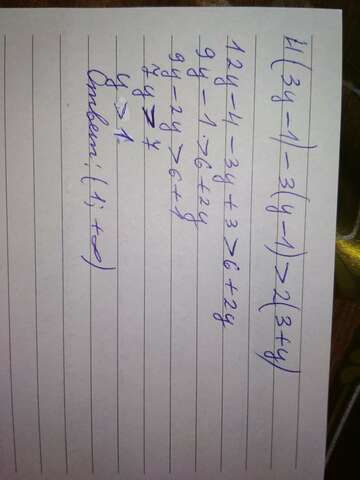 4(3y-1)-3(y-1)>2(3+y)
12y-4-3y+3>6+2y
9y-1>6+2y
9y-2y>6+1
7y>7
y>1
Ответ: (1; +∞)